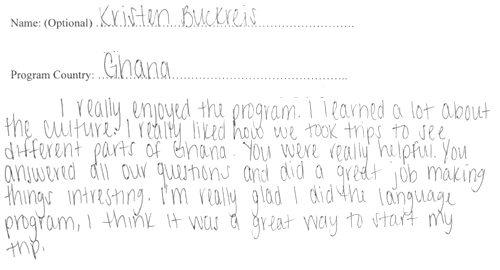 Name: (Optional) Kristen Buckreis
Program Country: Ghana
I really enjoyed the program. I learned a lot about
the culture. I really liked how we took trips to see
different parts of Ghana. You were really helpful. You
answered all our questions and did a great job making
things intresting. I'm really glad I did the language
program, I think it was a great way to start my
trip.